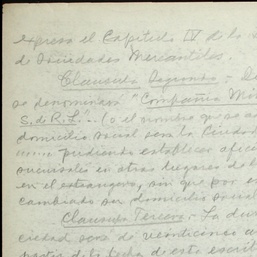 expresa el Capítulo IV de la
de Sociedades Mercantiles.
Clausula Segunda.- De
se denominará "Compañía Min
S. de R. L." (o el nombre que se
domicilio social será la Ciudad
pudiendo establecer
sucursales en otros lugares de
en el extranjero, sin que por
cambiado su domicilio social
Clausula Tercera.- La dur
ciedad será de veinticinco
partir de la fecha de esta escrit